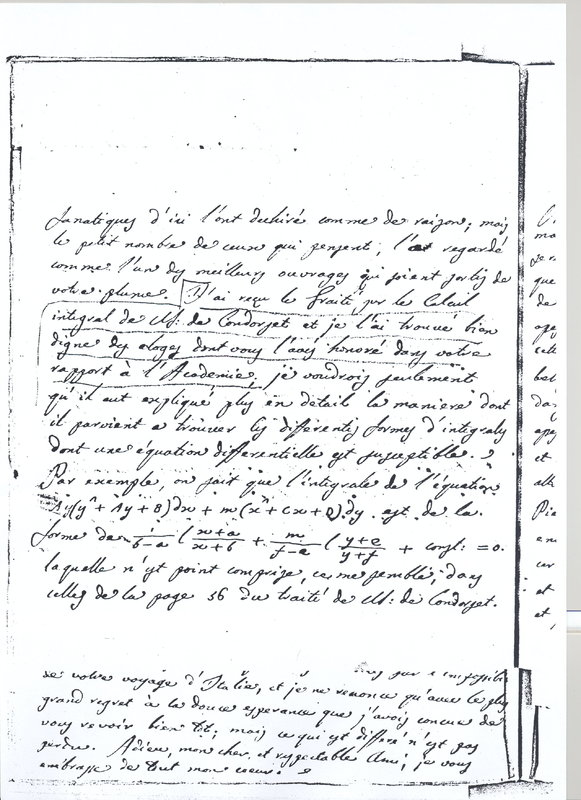 fanatiques d'ici l'ont dechiré comme de raison; mais
le petit nombre de ceux qui pensent, l'a regardé
comme l'un des meilleurs ouvrages qui soient sortis de
votre plume. J'ai reçu le traité sur le Calcul
integral de M: de Condorcet et je l'ai trouvé bien
digne des eloges dont vous l'avés honoré dans votre
rapport à l'Academie. je voudrois seulement
qu'il eut expliqué plus en détail la maniere dont
il parvient a trouver les differentes formes d'integrales
dont une équation differentielle est susceptible.
Par exemple, on sait que l'integrale de l'équation
(y² + Ay + B) dx + m (x² + Cx + D) dy est de la
forme de 1/b-a l x+a/x+b + m/f-e l y+e/y+f + const: = 0.
laquelle n'est point comprise, ce me semble, dans
celles de la page 56 du traité de M: de Condorcet.
sur
de votre voyage d'Italie, et je ne renonce qu'avec le plus
grand regret à la douce esperance que j'avois concue de
vous revoir bien tôt; mais ce qui est differé n'est pas
perdu. Adieu, mon cher et respectable Ami; je vous
embrasse de tout mon coeur.